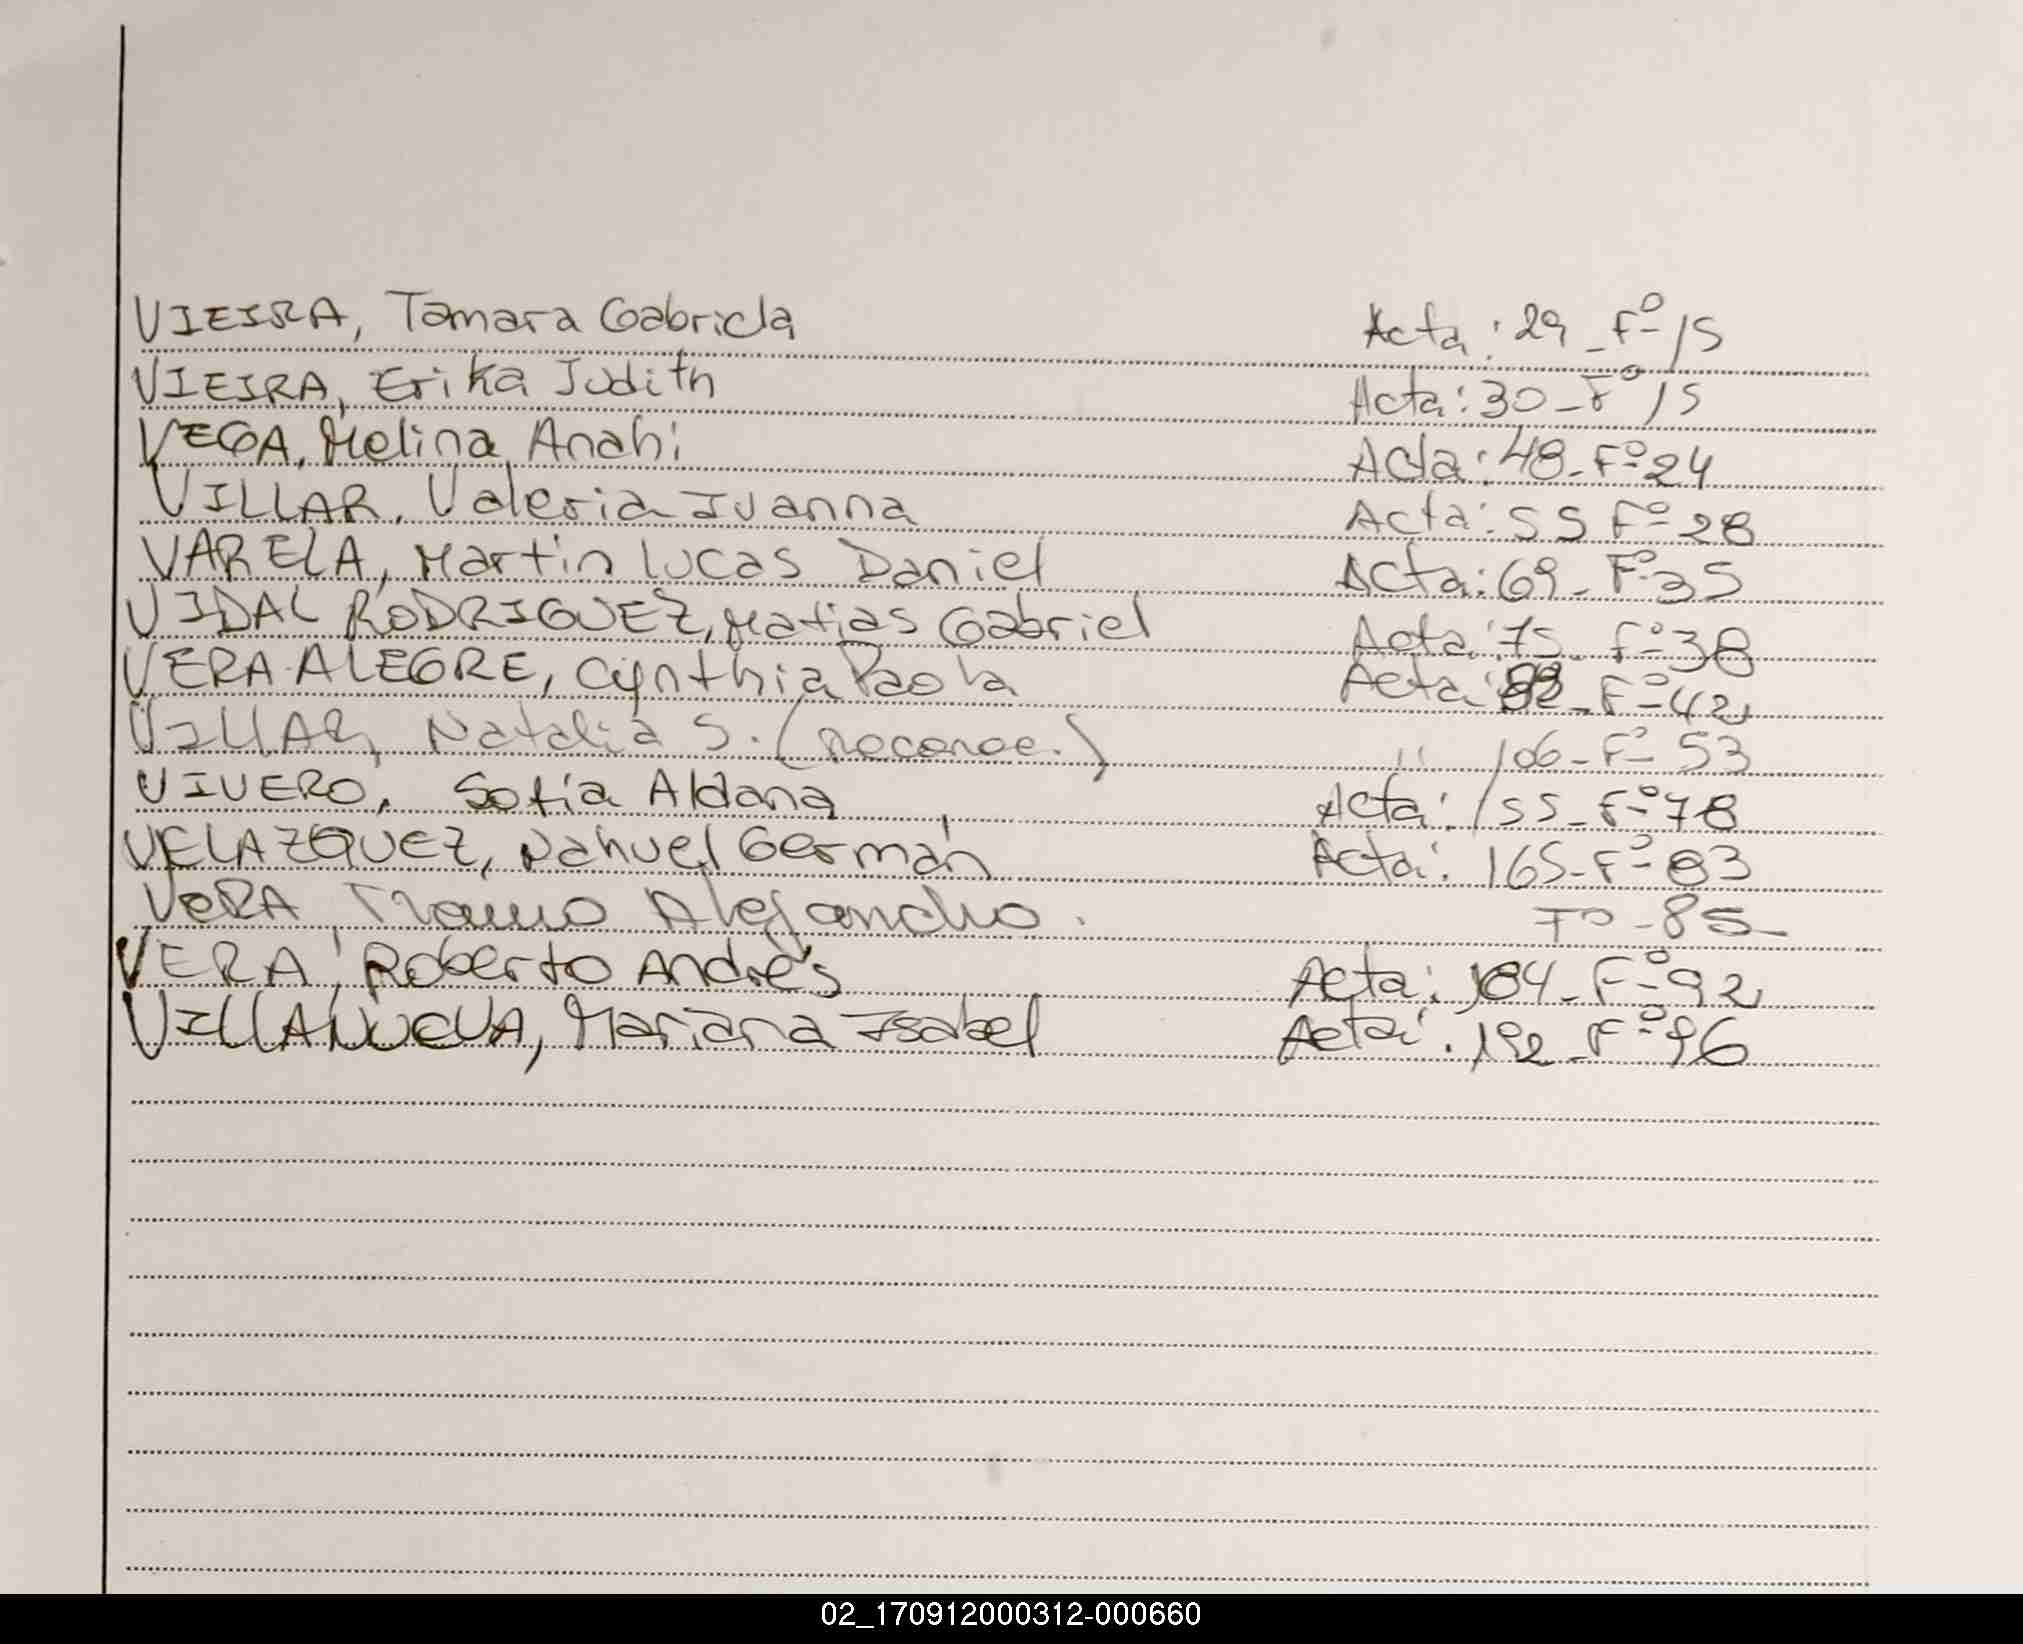 VIEIRA, Tamara Gabriela Acta: 29 - Fº 15
VIEIRA, Erika Judith Acta: 30 - Fº 15
VEGA, Melina Anahi Acta: 48 - Fº 24
VILLAR, Valeria Ivanna Acta: 55 Fº 28
VARELA, Martin Lucas Daniel Acta: 69 - Fº 35
VIDAL RODRIGUEZ, Matias Gabriel Acta: 75 - Fº 38
VERA ALEGRE, Cynthia Paola Acta: - Fº 42
VILLAR, Natalia S. (reconoc.) " 106 - Fº 53
VIVERO, Sofía Aldana Acta: 155 - Fº 78
VELAZQUEZ, Nahuel Germán Acta: 165 - Fº 83
VERA Alejandro. Fº - 85 -
VERA, Roberto Andrés Acta: 184 - Fº 92
VILLANUEVA, Mariana Isabel Acta: 192 - Fº 96
02_170912000312-000660